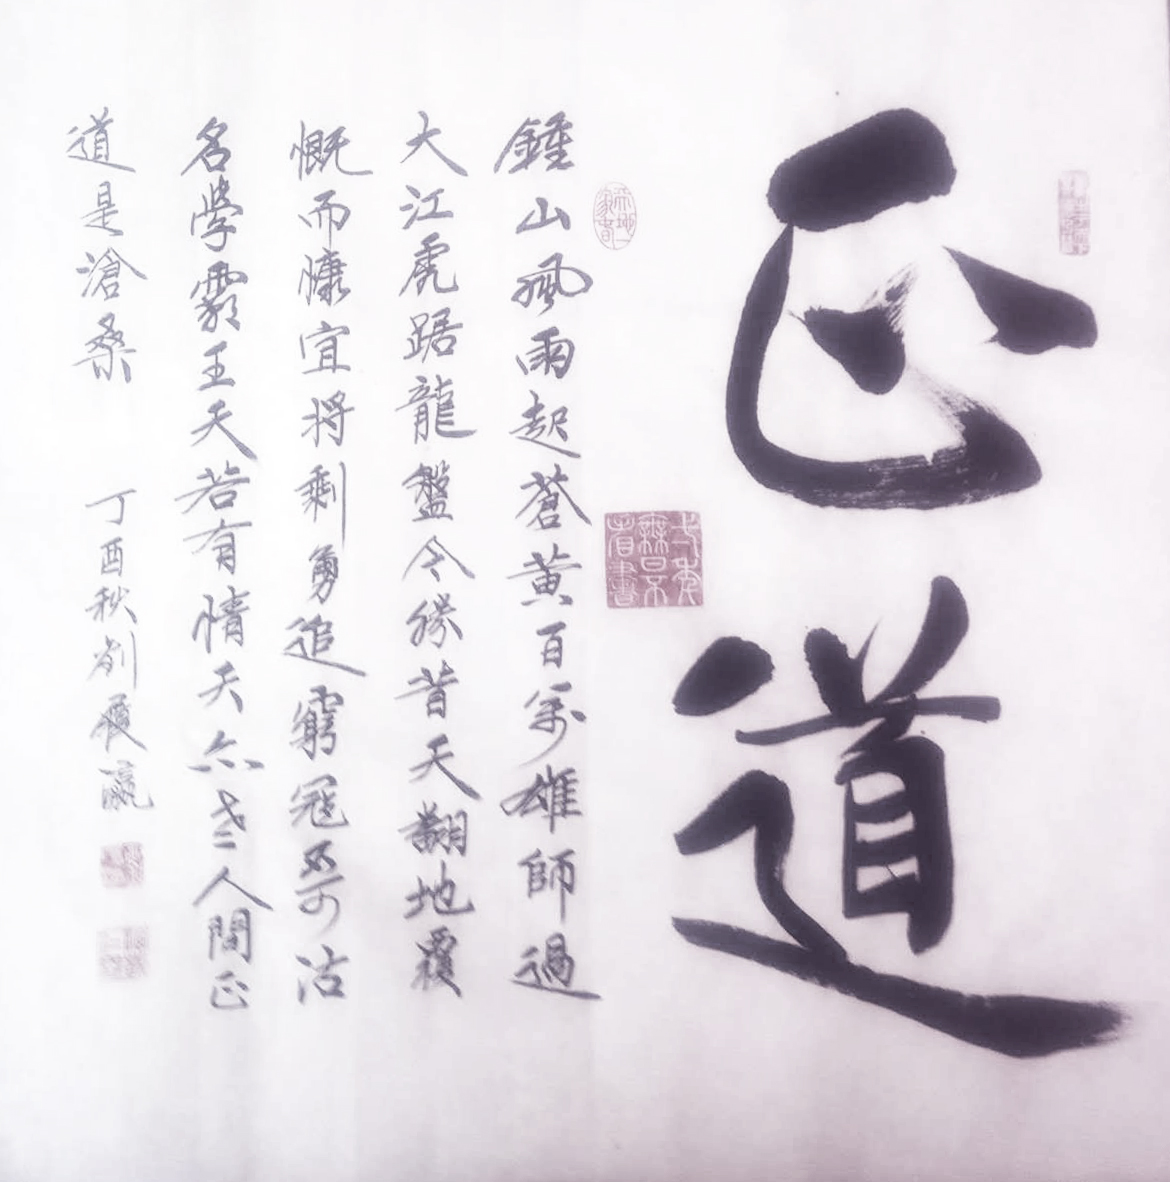 正道
鍾山風雨起蒼黄百萬雄師過
大江虎踞龍盤今勝昔天翻地覆
慨而慷宜将剩勇追窮寇不可沽
名學霸王天若有情天亦老人間正
道是滄桑 丁酉秋刘瀛